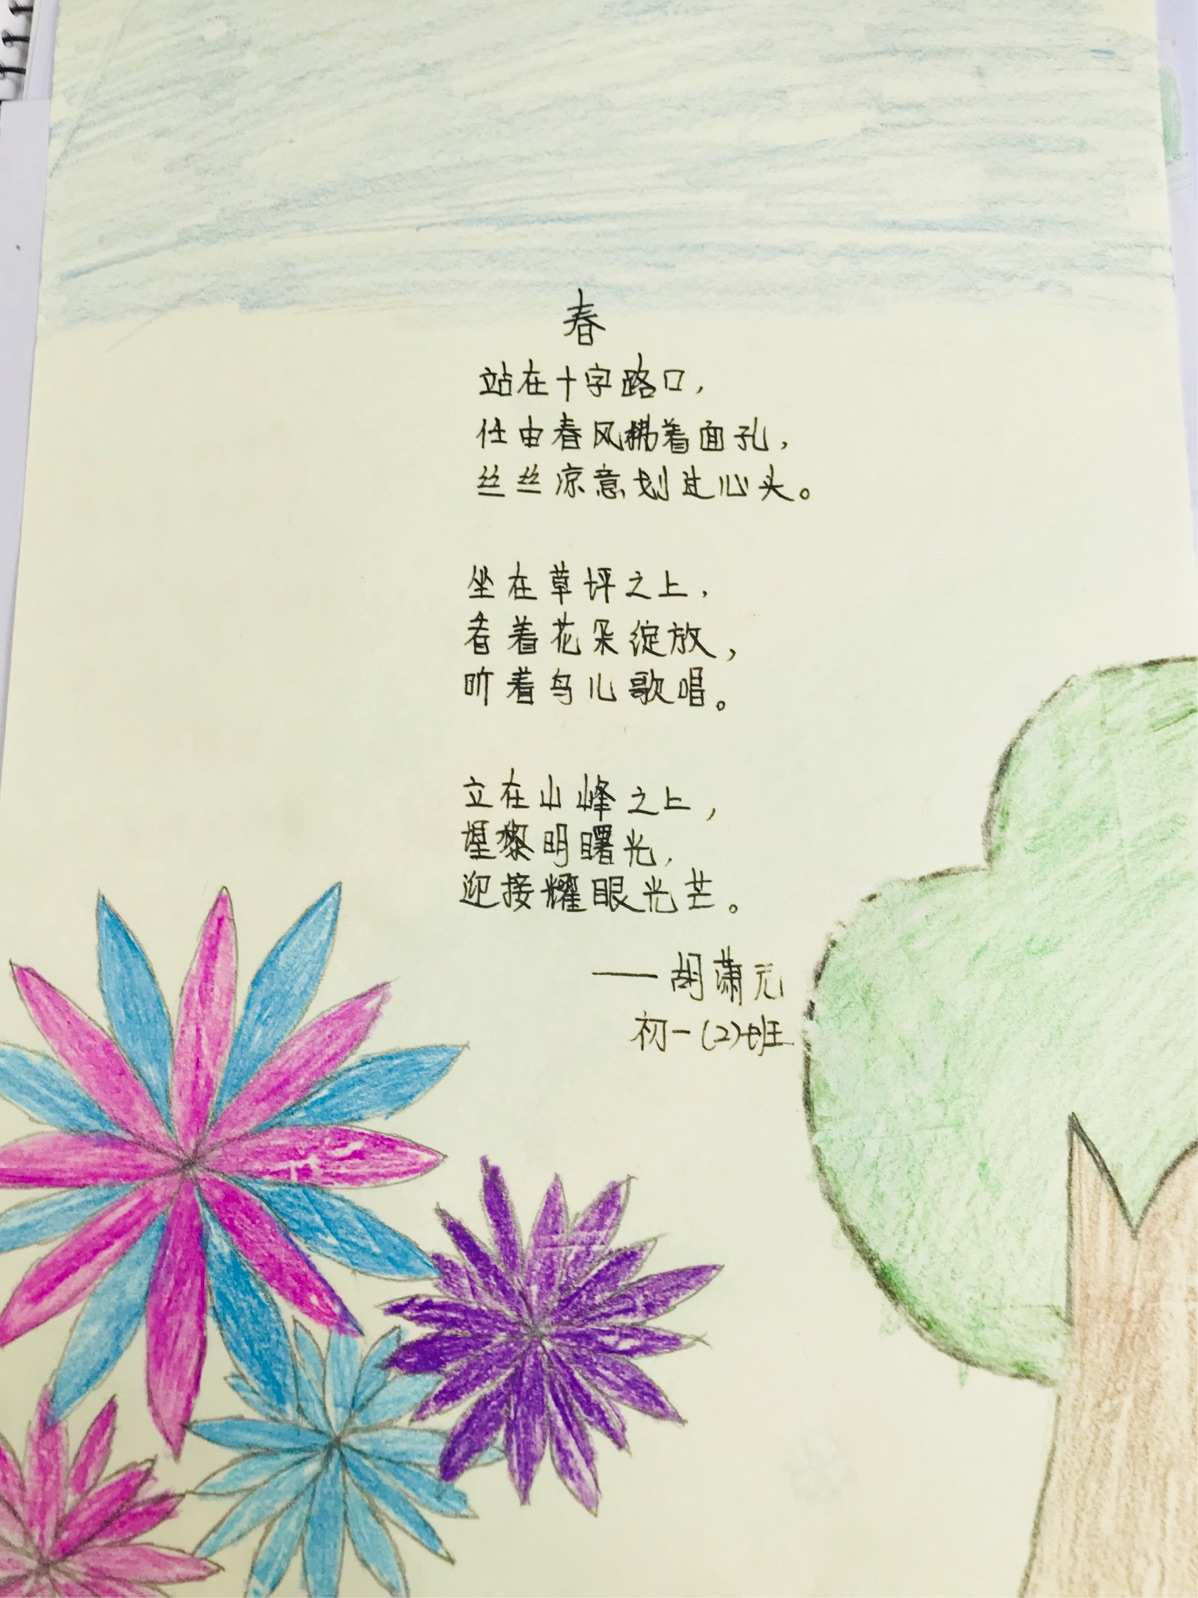 春
站在十字路口，
任由春风拂着面孔，
丝丝凉意划过心头。
坐在草坪之上，
看着花朵绽放，
听着鸟儿歌唱。
立在山峰之上，
望黎明曙光，
迎接耀眼光芒。
——胡潇元
初一(2)班